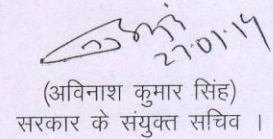 27.01.14
(अविनाश कुमार सिंह)
सरकार के संयुक्त सचिव ।